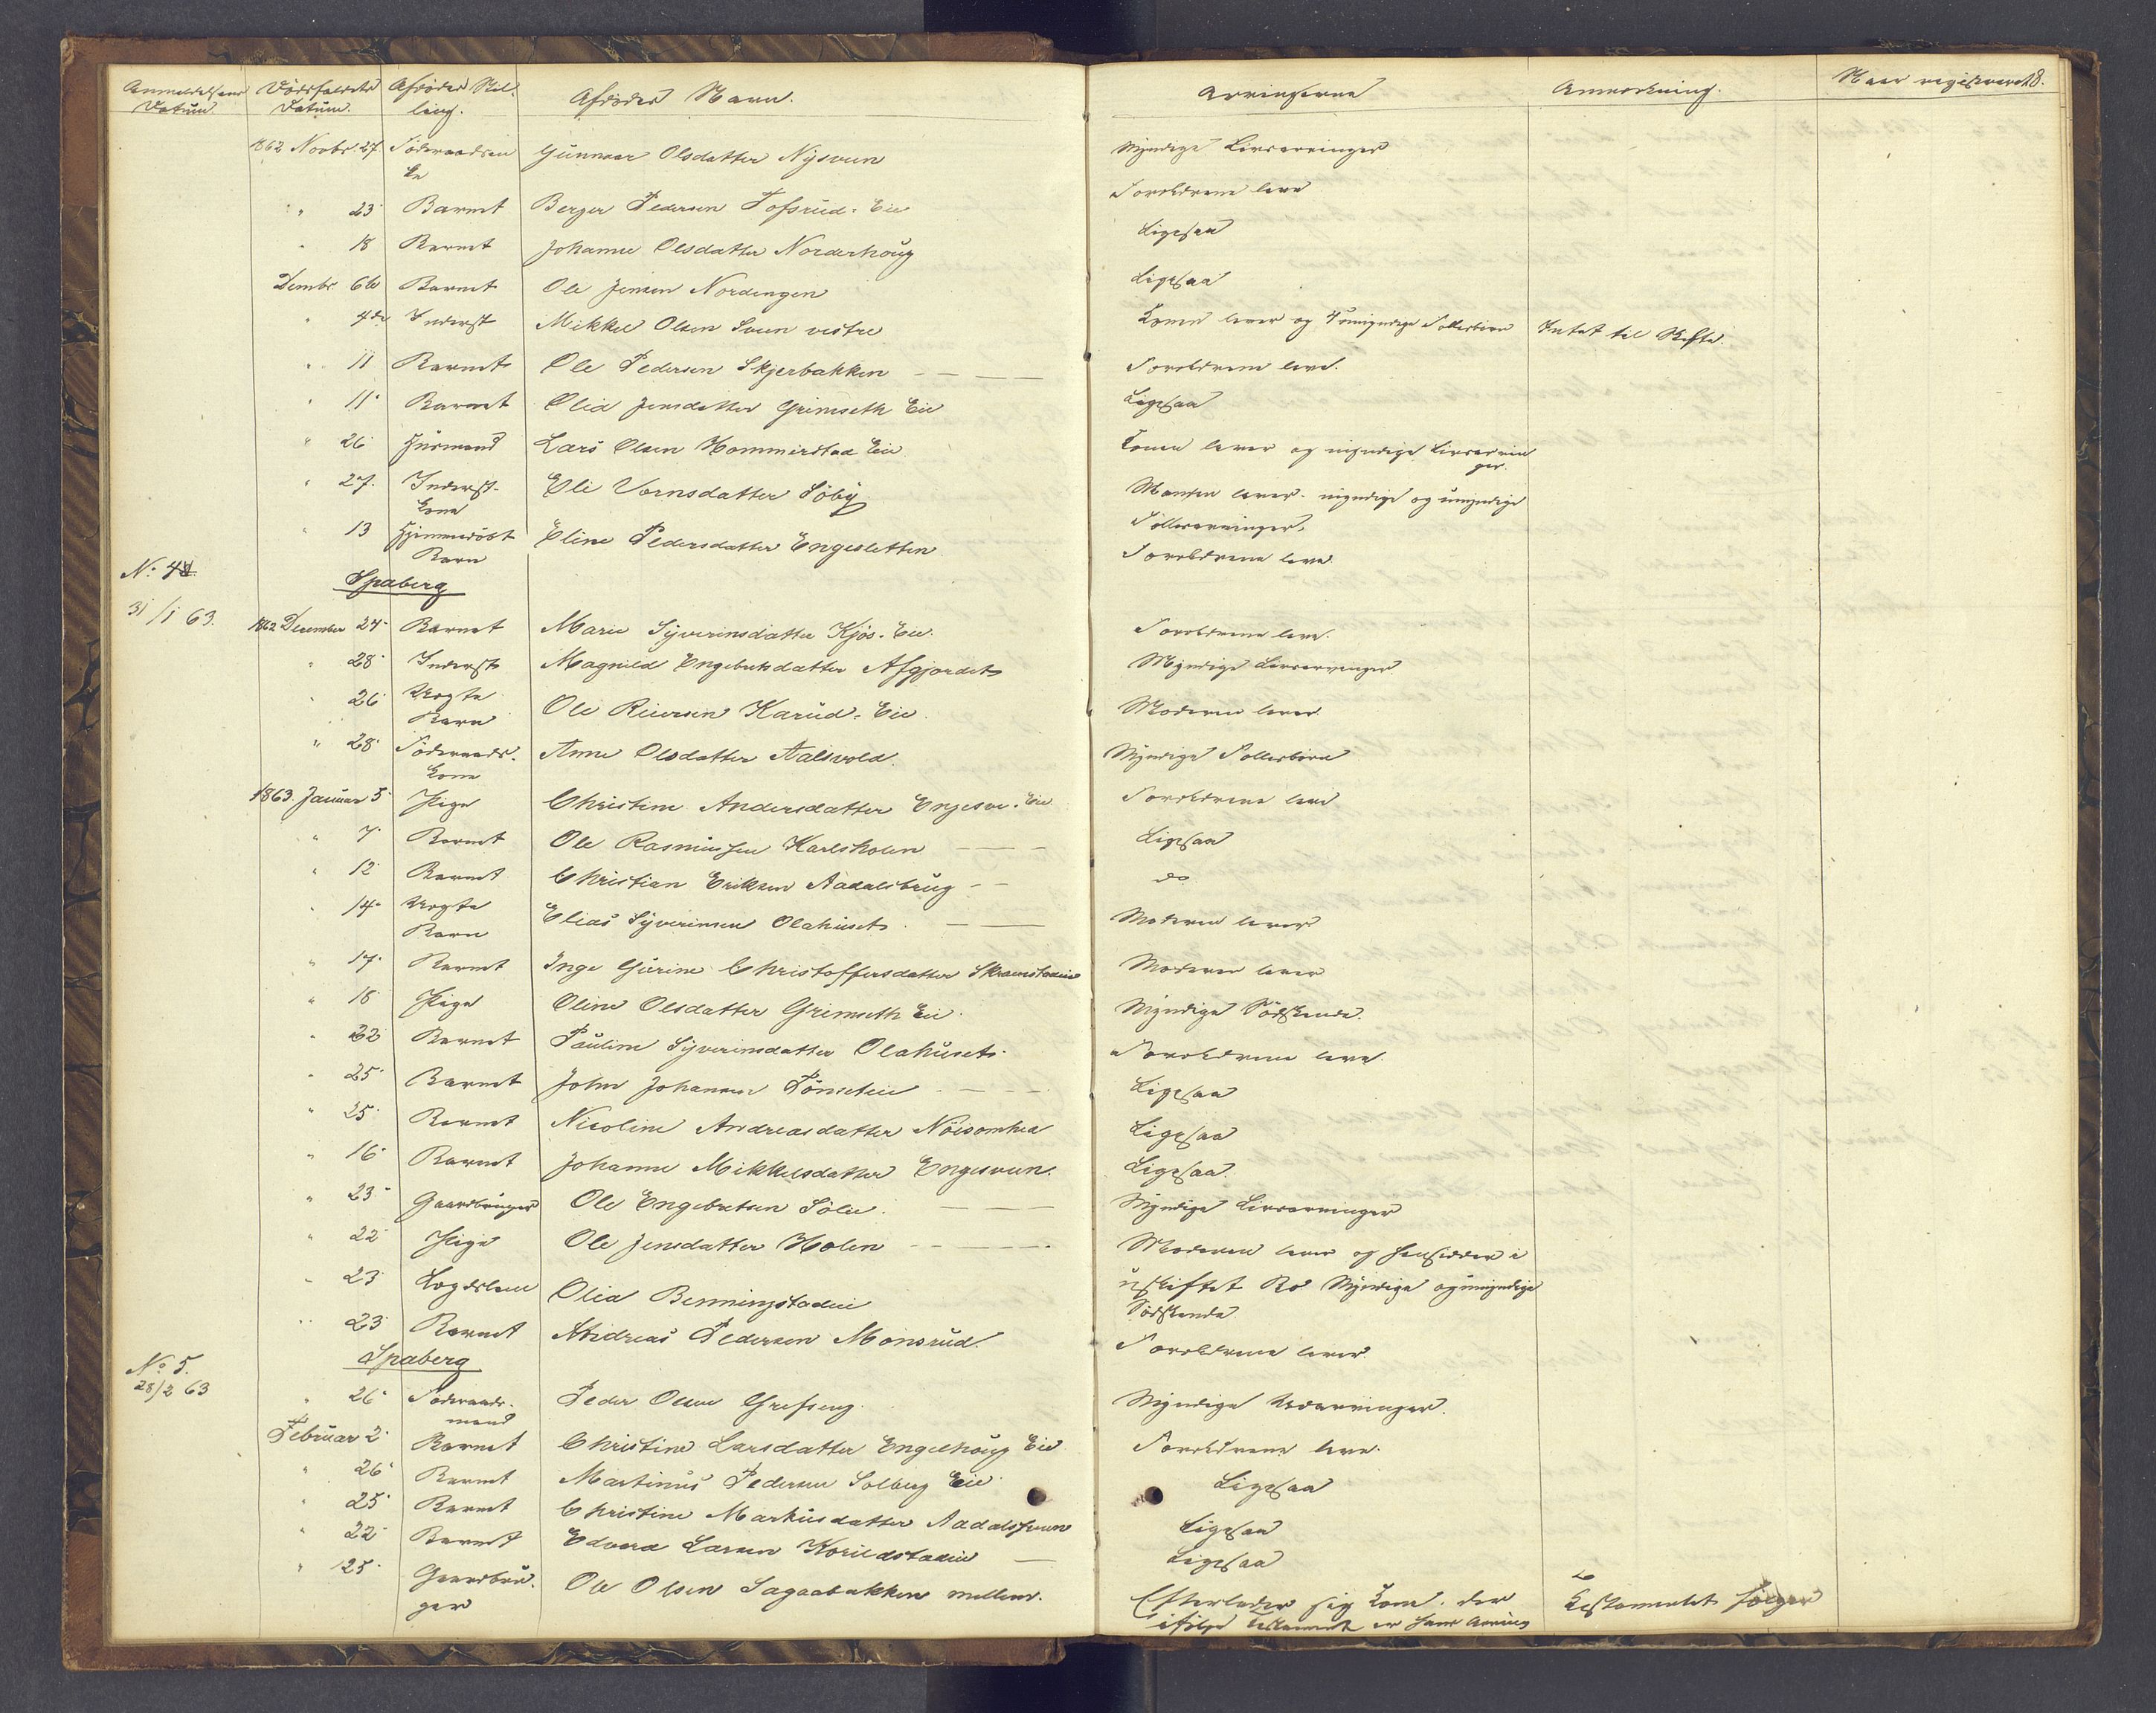 Anmeldelsens Datum. Dödsfaldets Datum. Afdödes Stilling. Afdödes Navn. Arvingerne Anmerkning. Naar registreret 8.
1862 Novbr. 27 Föderaadsen ke Gunnor Olsdatter Nysveen Myndige Livsarvinger
" 23 Barnet Berger Pedersen Tofsrud-Eie Foreldrene leve
" 18 Barnet Johanne Olsdatter Norderhoug Ligesaa
Dembr. 6te Barnet Ole Jensen Nordengen Ligesaa
" 4de Inderst Mikkel Olsen Sveen vestre Konen lever og 4 umyndige Fellesbörn Intet til Skifte.
" 11 Barnet Ole Pedersen Skjerbakken Foreldrene leve.
" 11 Barnet Olia Jensdatter Grimseth Eie Ligesaa
" 26 Husmand Lars Olsen Hommerstad Eie Konen lever og myndige Livsarvin
ger.
" 27. Inderst- Kone Eli Vornsdatter Söby Manden lever. myndige og umyndige
Fellesarvinger.
" 13 Hjemmedöbt Barn Eline Pedersdatter Engesletten Foreldrene leve
No. 4
Spaberg
31/1 63.
1862 December 24 Barnet Marie Syverinsdatter Kjös-Eie. Foreldrene leve.
" 28 Inderst Magnild Engebretsdatter Afgjordet Myndige Livsarvinger
" 26 Uegte Barn Ole Reiersen Karud-Eie. Moderen lever
" 28 Föderaads- Kone Anne Olsdatter Aalsvold. Myndige Fellesbörn
1863 Januar 5 Pige Christine Andersdatter Engesve-Eie Foreldrene leve
" 7 Barnet Ole Rasmussen Karlsholen Ligesaa
" 12 Barnet Christian Eriksen Aadalsbrug do
" 14 Uegte Barn Elias Syverinsen Olahuset Moderen lever
" 17 Barnet Inge Gurine Christoffersdatter Skramstadeie Moderen lever
" 18 Pige Oline Olesdatter Grimseth Eie Myndige Södskende.
" 22 Barnet Pauline Syverinsdatter Olahuset Foreldrene leve.
" 25 Barnet John Johannsen Tönseteie Ligesaa
" 25 Barnet Nicoline Andreasdatter Nöisomhed Ligesaa
" 16 Barnet Johanne Mikkelsdatter Engesveen. Ligesaa.
" 23 Gaardbruger Ole Engebretsen Sölie. Myndige Livsarvinger
" 22 Pige Ole Jensdatter Holen Moderen lever og hensidder i
" 23 Logdslem Olia Benningstadeie uskiftet Bo Myndige og umyndige
Södskende
" 23 Barnet Andreas Pedersen Monsrud. Foreldrene lever.
No 5.
28/2 63
Spaberg
" 26 Föderaads- mand Peder Olsen Grefseng. Myndige Udarvinger.
Februar 2 Barnet Christine Larsdatter Engelhoug Eie Foreldrene leve.
" 26 Barnet Martinus Pedersen Solberg Eie Ligesaa
" 25 Barnet Christine Markusdatter Aadalssveen Ligesaa
" 22 Barnet Edvard Larsen Korildstadeie Ligesaa
" 25 Gaardbru- ger Ole Olsen Sagaabakken mellem. Efterlader sig Kone. der Testamentet fölger
ifölge Testament er hans Arving